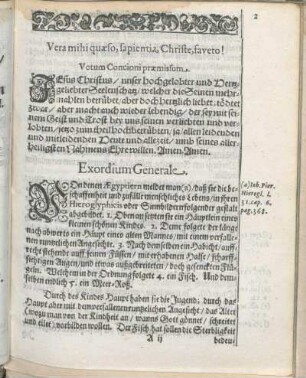 2
Vera mihi quæso, sapientia, Christe, faveto!
Votum Concioni præmissum.
JEsus Christus / unser hochgelobter und Hertz-
geliebter Seelenschatz / welcher die Seinen mehr-
mahlen betrübet, aber doch hertzlich liebet. tödtet
zwar / aber machet auch wieder lebendig / der sey mit sei-
nem Geist und Trost bey uns seinen verliebten und ver-
lobten, jetzo zum theil hochbetrübten, ja allen leidenden
und mitleidenden Heute und allezeit / umb seines aller-
heiligsten Jesu Nahmens Ehre willen. Amen. Amen.
Exordium Generale.
VOn denen Ægyptiern meldet man (a) / daß sie die be-
schaffenheit und zufälle menschliches Lebens / in ihren
Hieroglyphicis oder Sinnbildern folgender gestalt
abgebildet. 1. Oben an setzten sie ein Häuptlein eines
kleinen schönen Kindes. 2. Dem folgete der länge
nach abwerts ein Haupt eines alten Mannes / mit einem verfalle-
nen runtzlichen Angesichte. 3. Nach demselben ein Habicht / auff-
recht stehende auff seinen Füssen / mit erhabenen Halse / scharff-
sehenden Augen / und etwas außgebreiteten / doch gesenckten Flü-
geln. Welchem in der Ordnung folgete 4. ein Fisch. Und dem-
selben endlich 5. ein Meer-Roß.
(a) Joh. Pier.
Hierogl. l.
31. cap. 6.
pag. 368.
Durch des Kindes Haupt haben sie die Jugend; durch das
Haupt aber mit dem verfallenen runtzlichen Angesicht / das Alter
(wozu man von der Kindheit an / wanns Gott gönnet / schreitet
und eilet / vorbilden wollen. Der Fisch hat sollen die Sterbligkeit
A ij
bedeu-